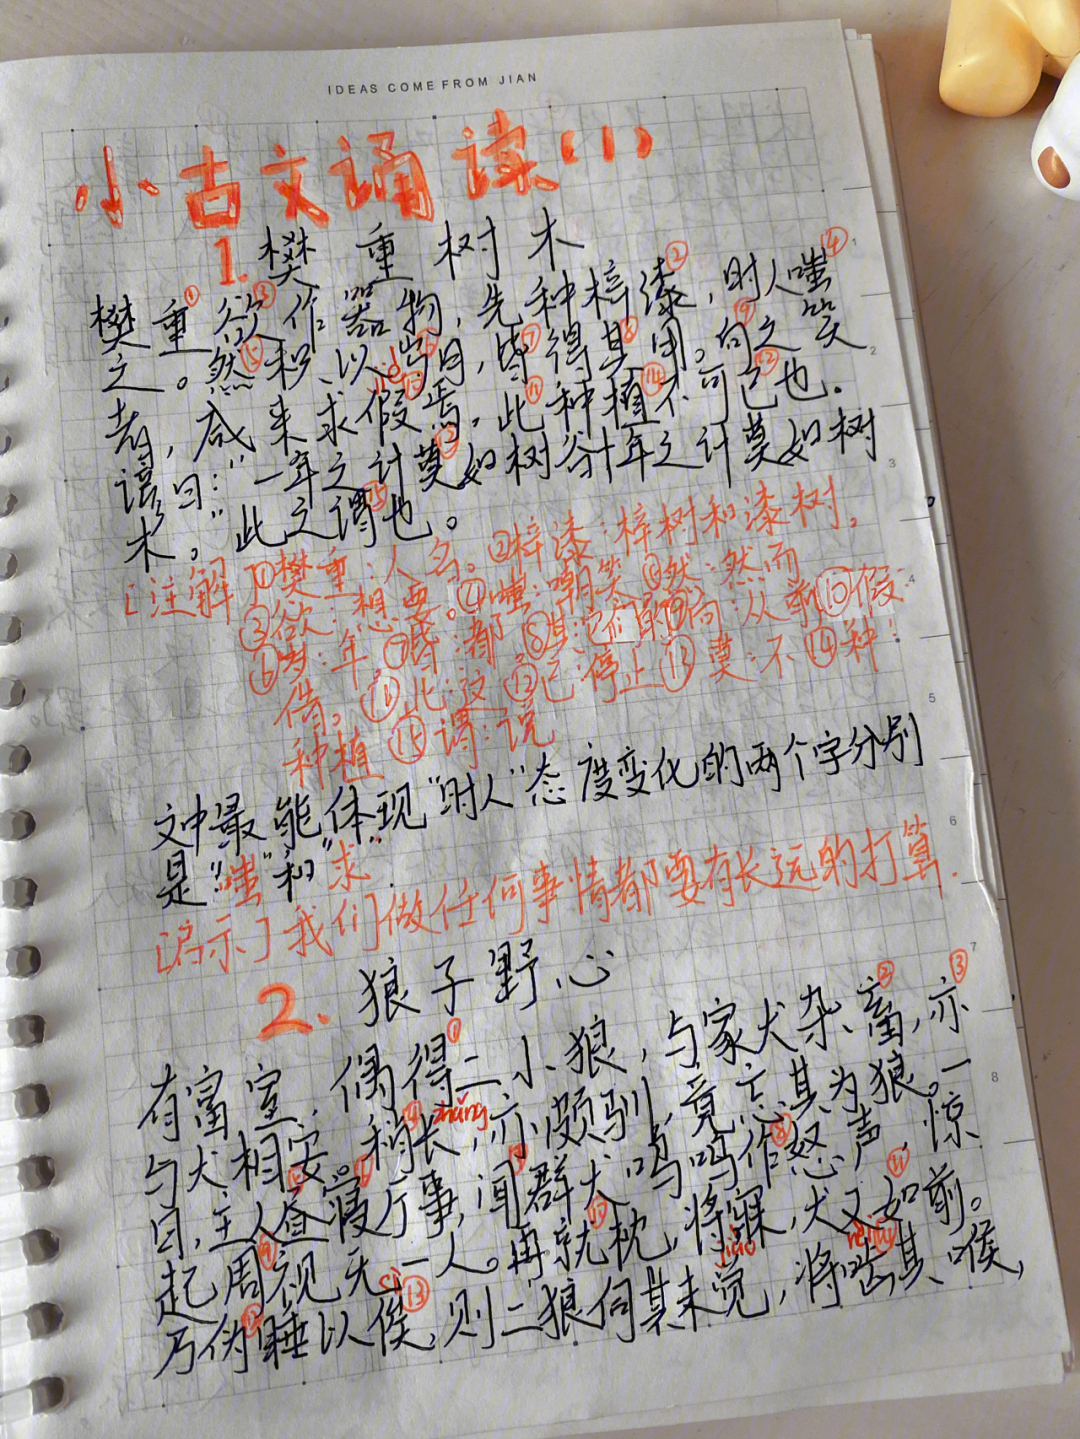 IDEAS COME FROM JIAN
小古文诵读(1)
1. 樊重树木
樊重欲作器物,先种梓漆,时人嗤
之。然积以岁月,皆得其用。向之笑
者,咸来求假焉。此种植不可已也.
谚曰:"一年之计莫如树谷十年之计莫如树
木。"此之谓也。
[注解]①樊重:人名。②梓漆:梓树和漆树。
③欲:想要。④嗤:嘲笑⑤然:然而
⑥岁:年,⑦皆:都⑧其:它们的⑨向:从前⑩假:
借。⑪此:这⑫已:停止⑬莫:不⑭种:
种植⑮谓:说
文中最能体现"时人"态度变化的两个字分别
是"嗤"和"求"
[启示]我们做任何事情都要有长远的打算.
2. 狼子野心
有富室,偶得二小狼,与家犬杂畜,亦
与犬相安。稍长zhǎng,亦颇驯,竟忘其为狼。一
日,主人昼寝厅事,闻群犬呜呜作怒声,惊
起周视无一人。再就枕,将寐,犬又如前。
乃伪睡以俟,则二狼伺其未觉,将啮其喉,